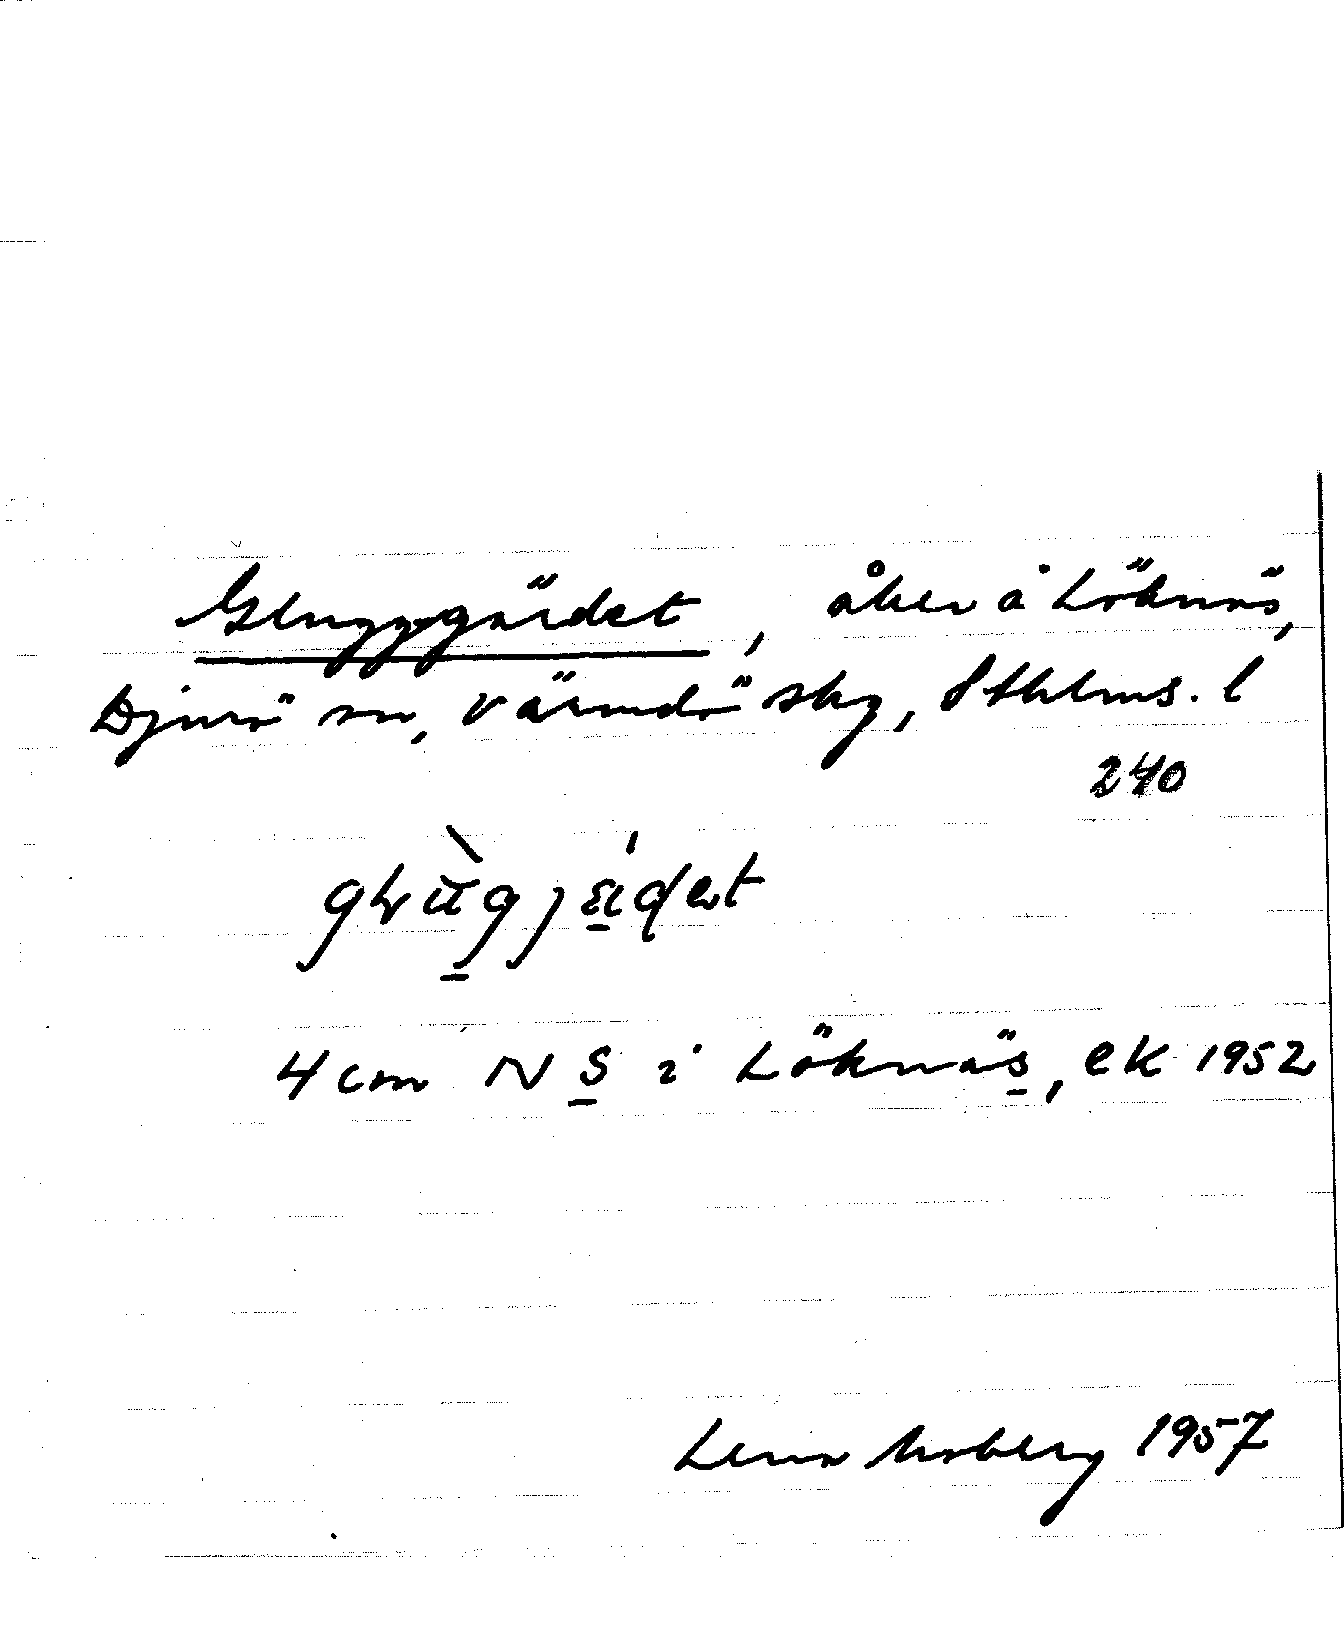 Glugggärdet, åker å Löknäs,
Djurö sn, Värmdö skg, Sthlms. l
240
4 cm N S i Löknäs, ek 1952
Lena Moberg 1957